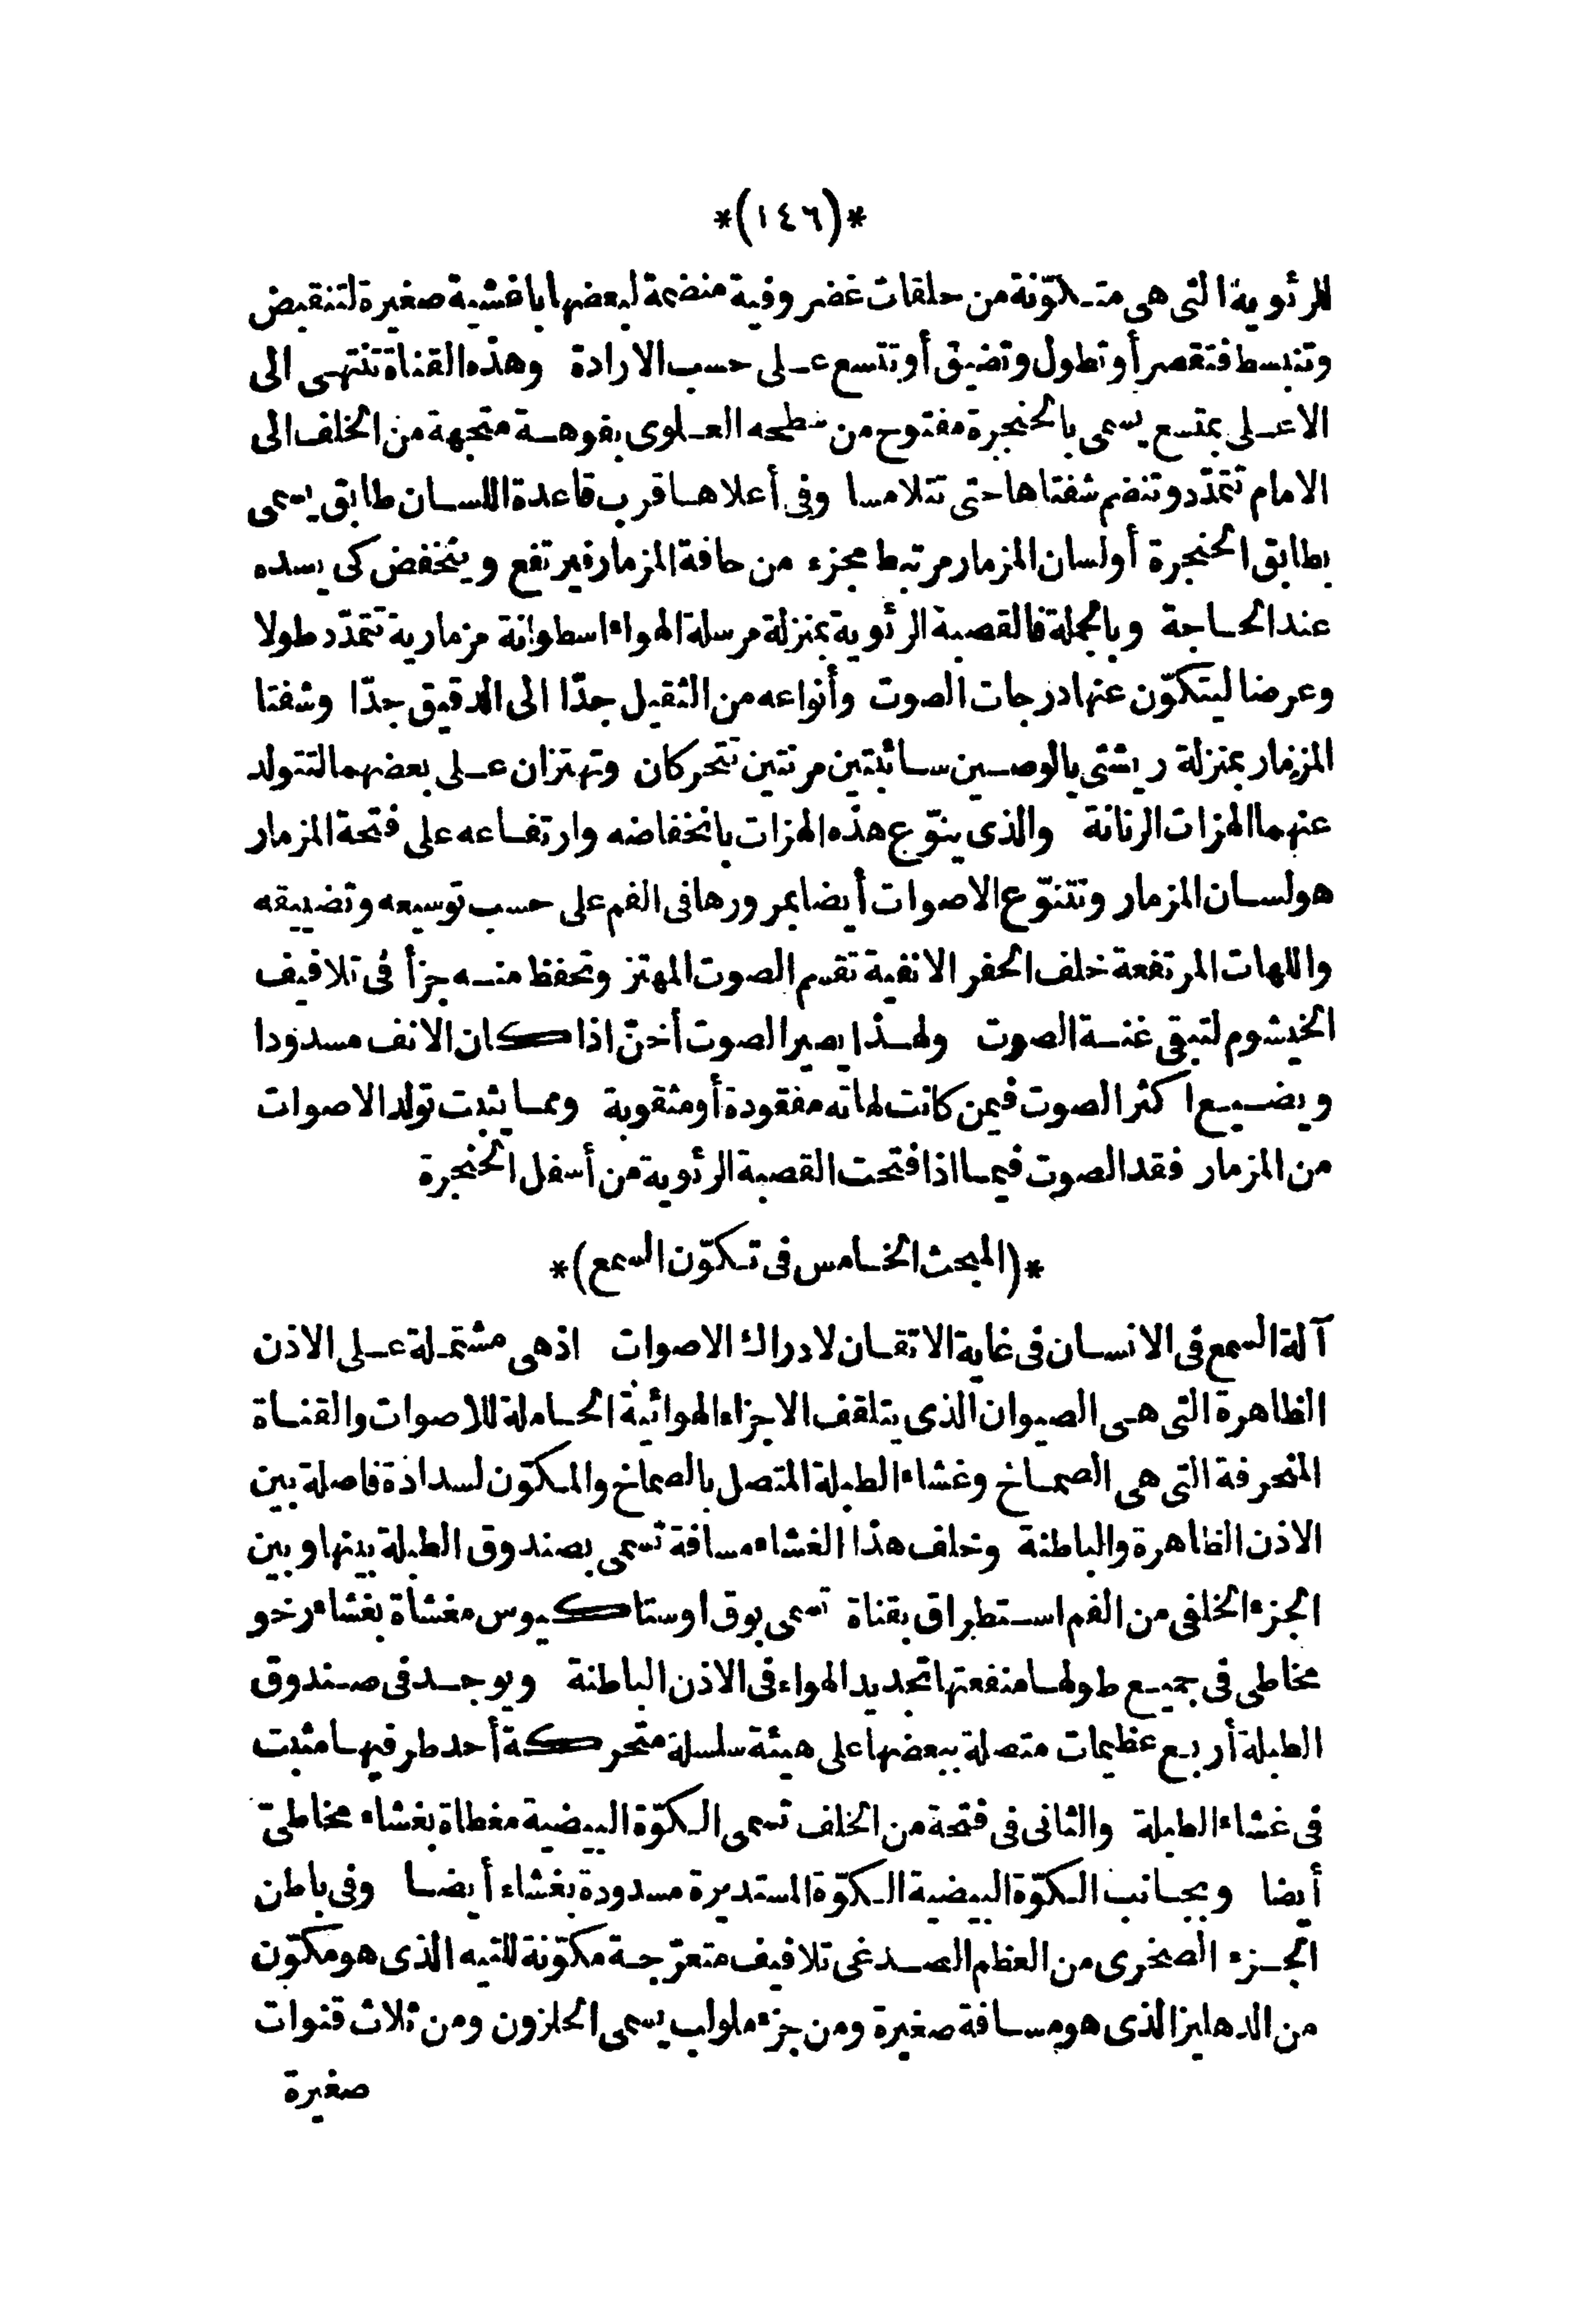 *(١٤٦)*
الرئوية التى هى متكوّنة من حلقات غضروفية منضمة لبعضها باغشية صغيرة لتنقبض
وتنبسط فتقصر أو تطول وتضيق أو تتسع على حسب الارادة وهذه القناة تنتهى الى
الاعلى بمتسع يسمى بالحنجرة مفتوح من سطحه العلوى بفوهة متجهة من الخلف الى
الامام تتمدّد وتنضم شفتاها حتى تتلامسا وفى أعلاها قرب قاعدة اللسان طابق يسمى
بطابق الحنجرة أو لسان المزمار مرتبط بجزء من حافة المزمار فيرتفع وينخفض كى يسده
عند الحاجة وبالجملة فالقصبة الرئوية بمنزلة مرسلة الهواء اسطوانة مزمارية تتمدّد طولا
وعرضا ليتكوّن عنها درجات الصوت وأنواعه من الثقيل جدّا الى الدقيق جدّا وشفتا
المزمار بمنزلة ريشتى بالوصين سائبتين مرنتين تتحركان وتهتزان على بعضهما لتتولد
عنهما الهزات الرنانة والذى ينوّع هذه الهزات بانخفاضه وارتفاعه على فتحة المزمار
هو لسان المزمار وتتنوّع الاصوات أيضا بمرورها فى الفم على حسب توسيعه وتضييقه
واللهات المرتفعة خلف الحفر الانفية تقسم الصوت المهتز وتحفظ منه جزأ فى تلافيف
الخيشوم لتبقى غنة الصوت ولهذا يصير الصوت أخنّ اذا كان الانف مسدودا
ويضيع اكثر الصوت فيمن كانت لهاته مفقودة أو مثقوبة ومما يثبت تولد الاصوات
من المزمار فقد الصوت فيما اذا فتحت القصبة الرئوية من أسفل الحنجرة
*(المبحث الخامس فى تكوّن السمع)*
آلة السمع فى الانسان فى غاية الاتقان لادراك الاصوات اذ هى مشتملة على الاذن
الظاهرة التى هى الصيوان الذى يتلقف الاجزاء الهوائية الحاملة للاصوات والقناة
المنحرفة التى هى الصماخ وغشاء الطبلة المتصل بالصماخ والمكوّن لسدادة فاصلة بين
الاذن الظاهرة والباطنة وخلف هذا الغشاء مسافة تسمى بصندوق الطبلة بينها وبين
الجزء الخلفى من الفم استطراق بقناة تسمى بوق اوستاكيوس مغشاة بغشاء رخو
مخاطى فى جميع طولها منفعتها تجديد الهواء فى الاذن الباطنة ويوجد فى صندوق
الطبلة أربع عظيمات متصلة ببعضها على هيئة سلسلة متحركة أحد طرفيها مثبت
فى غشاء الطبلة والثانى فى فتحة من الخلف تسمى الكوّة البيضية مغطاة بغشاء مخاطىّ
أيضا وبجانب الكوّة البيضية الكوّة المستديرة مسدودة بغشاء أيضا وفى باطن
الجزء الصخرى من العظم الصدغى تلافيف متعرّجة مكوّنة للتيه الذى هو مكوّن
من الدهليز الذى هو مسافة صغيرة ومن جزء ملولب يسمى الحلزون ومن ثلاث قنوات
صغيرة